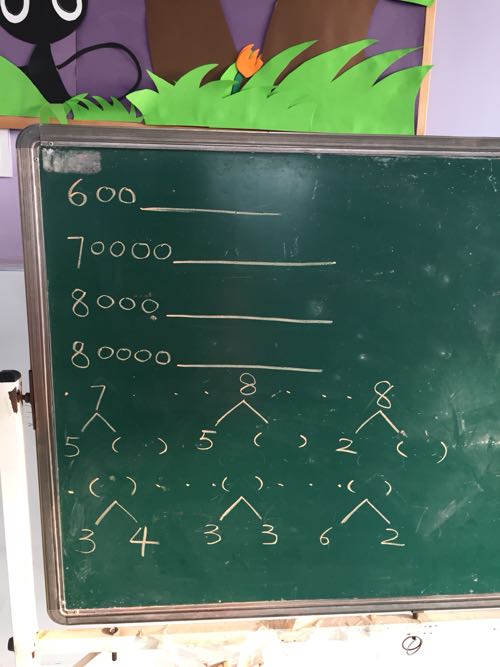 600
70000
8000
80000
7 8 8
5 ( ) 5 ( ) 2 ( )
( ) ( ) ( )
3 4 3 3 6 2